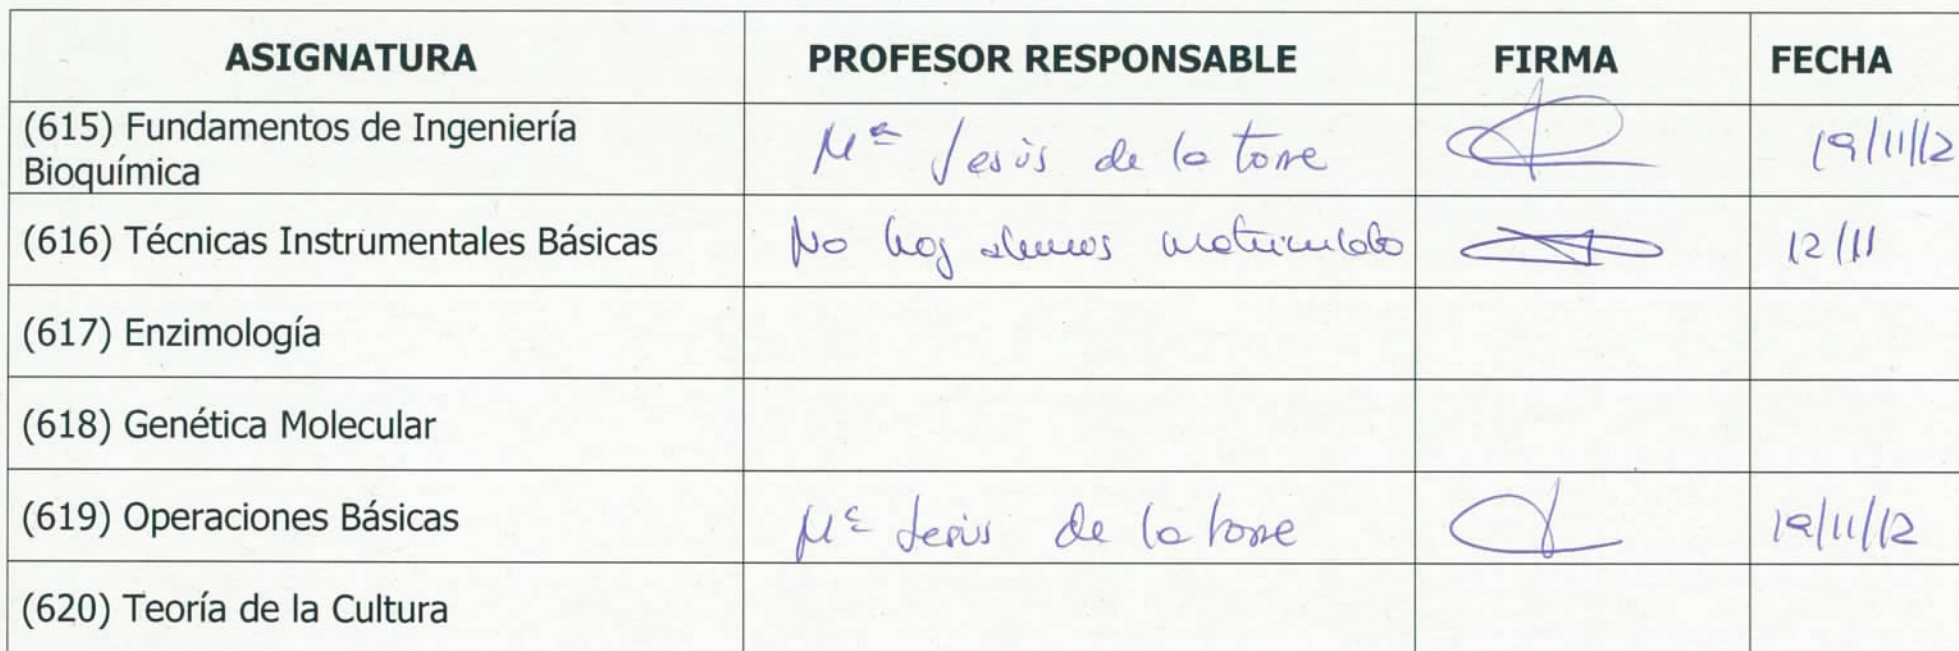 ASIGNATURA PROFESOR RESPONSABLE FIRMA FECHA
(615) Fundamentos de Ingeniería
Bioquímica
Mª Jesús de la torre 19/11/12
(616) Técnicas Instrumentales Básicas No hay alumnos matriculado 12/11
(617) Enzimología
(618) Genética Molecular
(619) Operaciones Básicas Mª Jesús de la torre 19/11/12
(620) Teoría de la Cultura